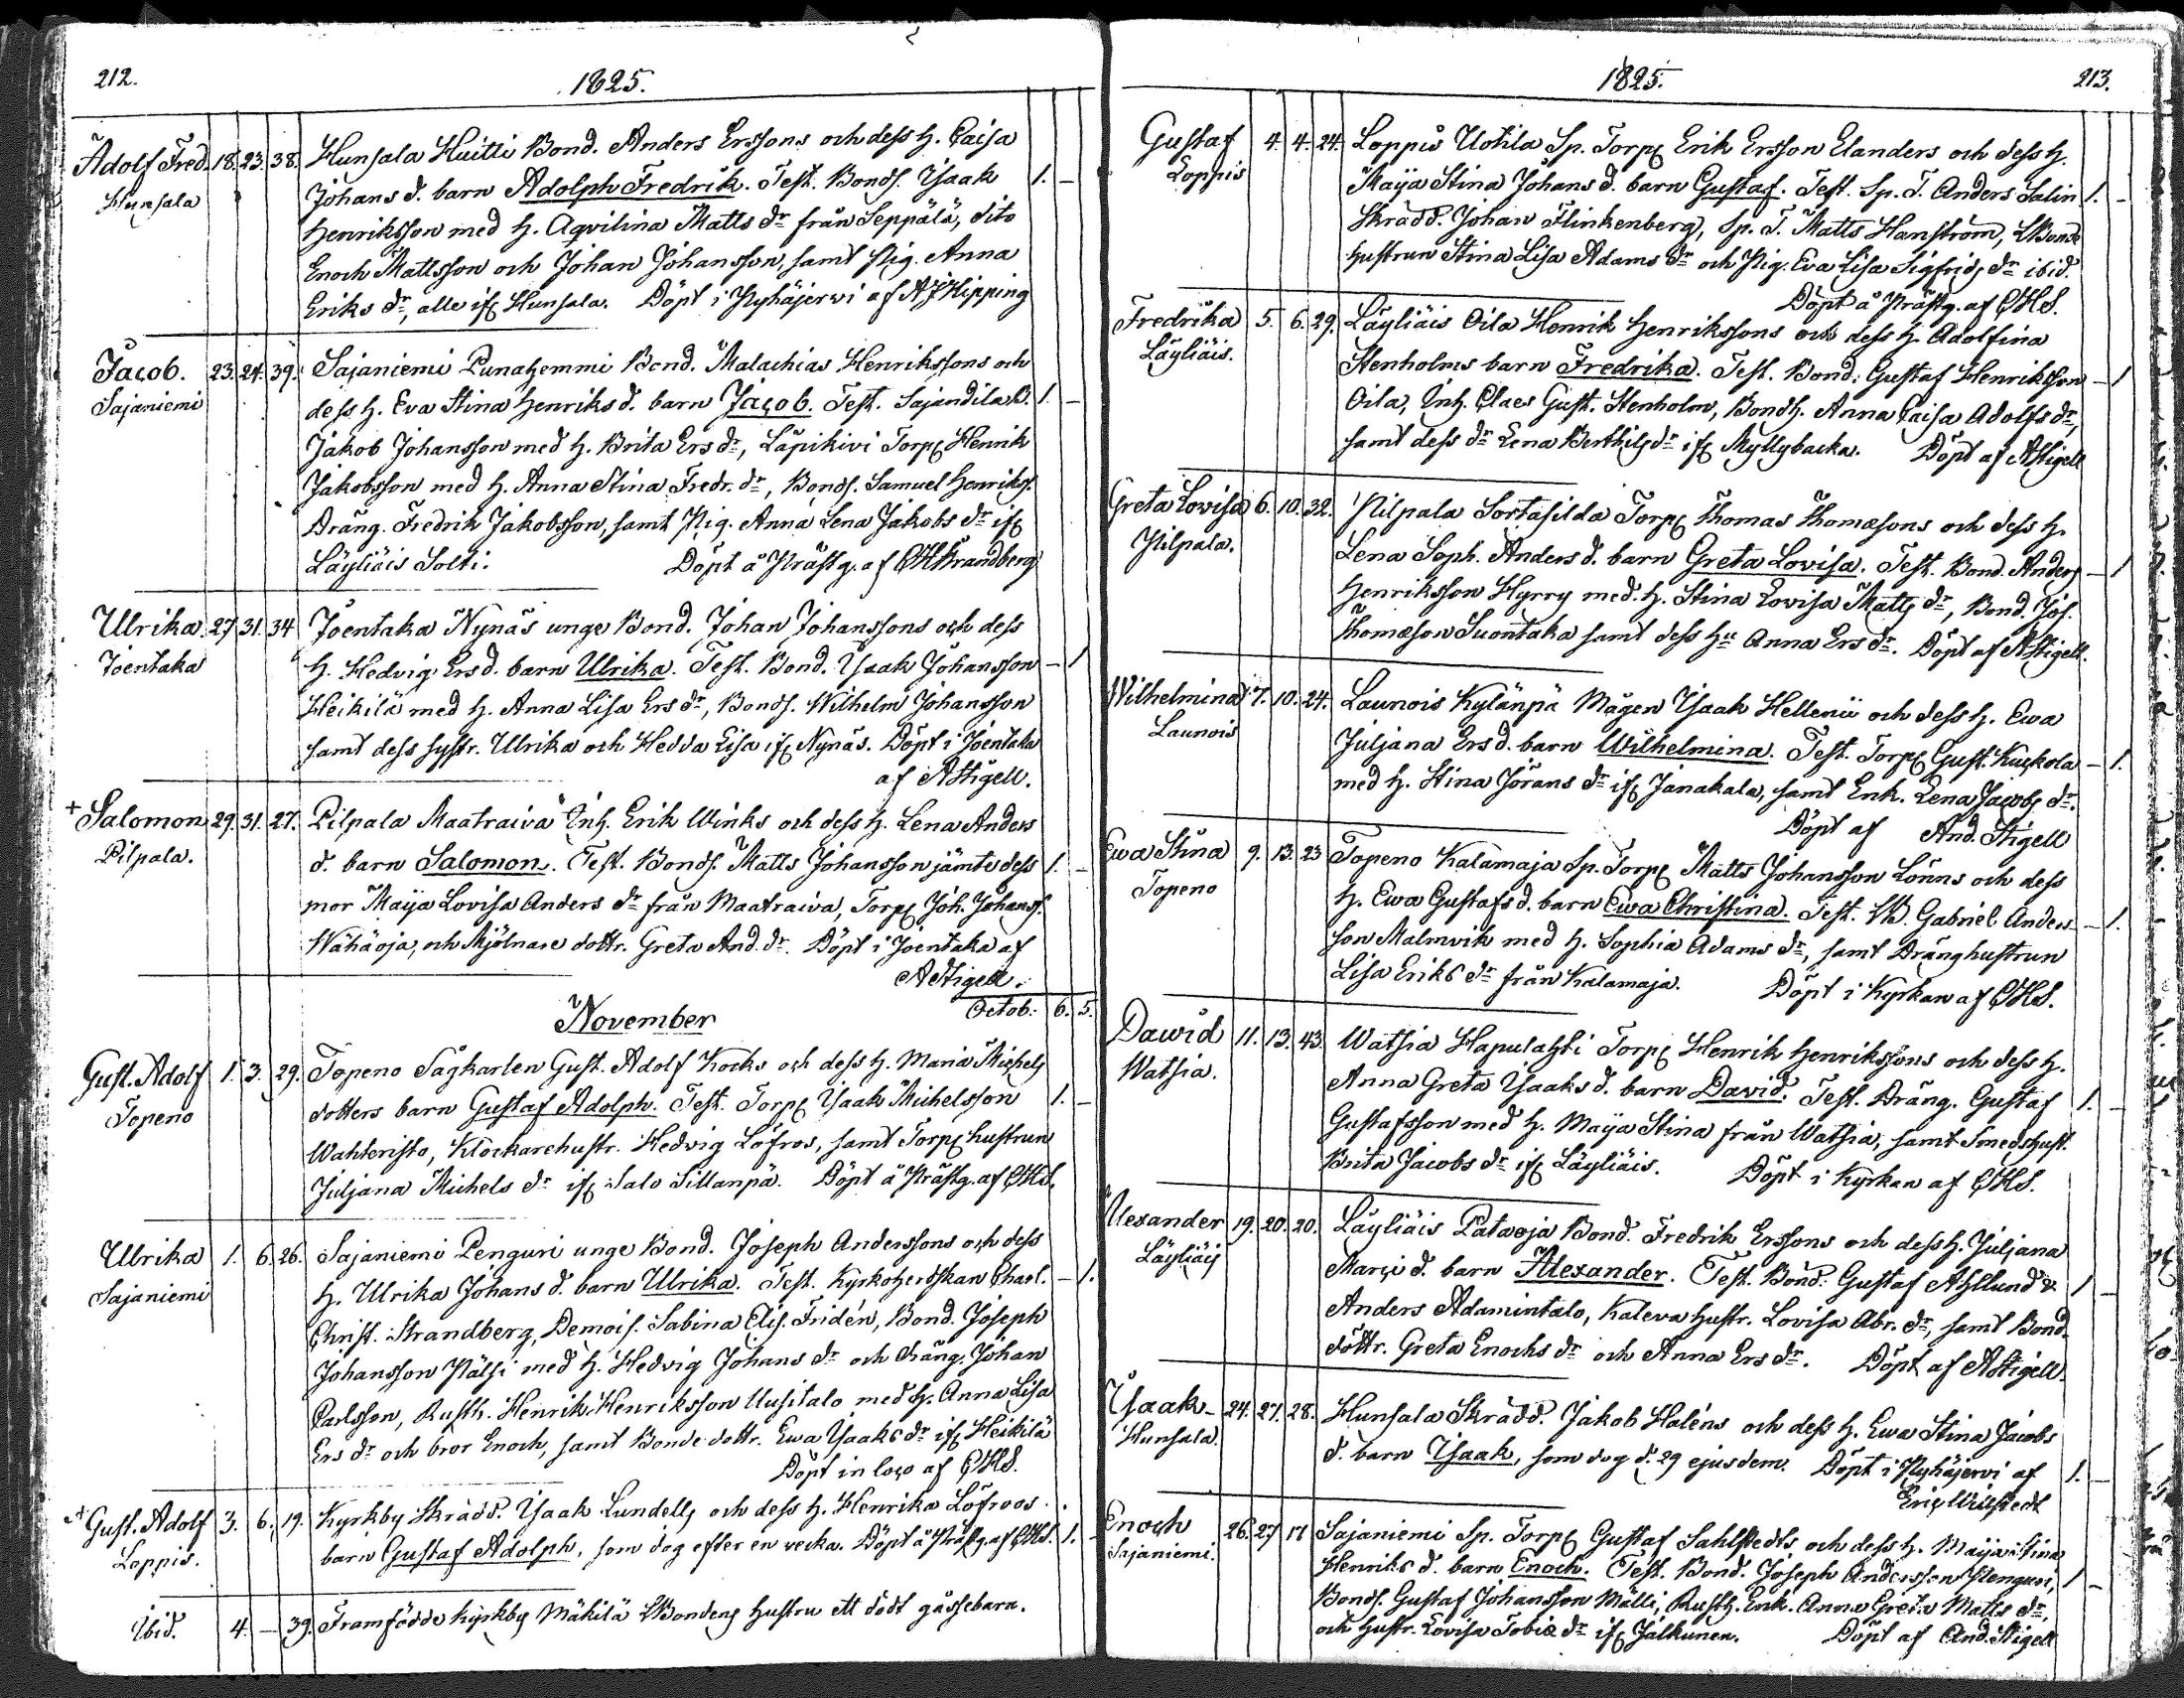 212.
1825.
Adolf Fred. 18. 23. 38. Hunsala Huitti Bond. Anders Erssons och dess h. Caisa
Hunsala Johans d. barn Adolph Fredrik. Test. Bonds. Isaak 1. –
Henriksson med h. Aqvilina Matts dr från Seppälä, dito
Enoch Mattsson och Johan Johansson, samt Pig. Anna
Eriks dr, alle ifr Hunsala. Döpt i Pyhäjerwi af A J Hipping
Jacob. 23. 24. 39. Sajaniemi Punahemmi Bond. Malachias Henrikssons och
Sajaniemi dess h. Eva Stina Henriks d. barn Jacob. Test. Sajandila B. 1. –
Jakob Johansson med h. Brita Ers dr, Läpikivi Torp Henrik
Jakobsson med h. Anna Stina Fredr. dr, Bonds. Samuel Henriks.
Dräng. Fredrik Jakobsson, samt Pig. Anna Lena Jakobs dr ifr
Läyliäis Solti. Döpt å Prästg. af CHStrandberg
Ulrika 27. 31. 34 Joentaka Nynäs unge Bond. Johan Johanssons och dess
Joentaka h. Hedvig Ers d. barn Ulrika. Test. Bond. Isaak Johansson – 1
Heikilä med h. Anna Lisa Ers dr, Bonds. Wilhelm Johansson
samt dess systr. Ulrika och Hedda Lisa ifr Nynäs. Döpt i Joentaka
af AStigell.
+ Salomon 29. 31. 27. Pilpala Maatraiva Inh. Erik Winks och dess h. Lena Anders
Pilpala. d. barn Salomon. Test. Bonds. Matts Johansson jämte dess 1. –
mor Maija Lovisa Anders dr från Maatraiva, Torp Joh. Johanss.
Wähäoja, och Mjölnare dottr. Greta And. dr. Döpt i Joentaka af
AStigell.
Octob. 6. 5.
November
Gust. Adolf 1. 3. 29. Topeno Sågkarlen Gust. Adolf Kocks och dess h. Maria Michels
Topeno dotters barn Gustaf Adolph. Test. Torp Isaak Michelsson 1. –
Wahteristo, Klockarehustr. Hedvig Löfros, samt Torp hustrun
Juljana Michels dr ifr Salo Sillanpä. Döpt å Prästg. af CHS.
Ulrika 1. 6. 26. Sajaniemi Penguri unge Bond. Joseph Anderssons och dess
Sajaniemi h. Ulrika Johans d. barn Ulrika. Test. Kyrkoherdskan Charl. – 1.
Christ. Strandberg, Demois. Sabina Elis. Fridén, Bond. Joseph
Johansson Pältsi med h. Hedvig Johans dr och dräng. Johan
Carlsson, Rusth. Henrik Henriksson Uusitalo med h. Anna Lisa
Ers dr och bror Enoch, samt Bonde dottr. Ewa Isaaks dr ifr Heikilä
Döpt in loco af CHS.
+ Gust. Adolf 3. 6. 19. Kyrkby Skrädd. Isaak Lundells och dess h. Henrika Löfroos
Loppis. barn Gustaf Adolph, som dog efter en vecka. Döpt å Prästg. af CHS. 1. –
Ibid. 4. – 39. Framfödde Kyrkby Mäkilä LBondens hustru ett dödt gåssebarn.
1825.
213.
Gustaf 4. 4. 24. Loppis Uotila Sp. Torp Erik Ersson Elanders och dess h.
Loppis Maija Stina Johans d. barn Gustaf. Test. Sp. T. Anders Salin 1. –
Skrädd. Johan Flinkenberg, Sp. T. Matts Hanström, LBonde
hustrun Stina Lisa Adams dr och Pig. Eva Lisa Sigfrids dr ibid.
Döpt å Prästg. af CHS.
Fredrika 5. 6. 29. Läyliäis Oila Henrik Henrikssons och dess h. Adolfina
Läyliäis. Stenholms barn Fredrika. Test. Bond. Gustaf Henriksson – 1
Oila, Inh. Claes Gust. Stenholm, Bondh. Anna Caisa Adolfs dr,
samt dess dr Lena Berthils dr ifr Myllybacka. Döpt af AStigell
Greta Lovisa 6. 10. 32. Pilpala Sortasilda Torp Thomas Thomæsons och dess h.
Pilpala. Lena Soph. Anders d. barn Greta Lovisa. Test. Bond. Anders – 1
Henriksson Hyrry med h. Stina Lovisa Matts dr, Bond. Jos.
Thomæson Suontaka samt dess hu Anna Ers dr. Döpt af AStigell.
Wilhelmina 7. 10. 24. Launois Kylänpä Mågen Isaak Hellenii och dess h. Ewa
Launois Juljana Ers d. barn Wilhelmina. Test. Torp Gust. Kuckola – 1.
med h. Stina Jörans dr ifr Janakala, samt Enk. Lena Jacobs dr.
Döpt af And. Stigell
Ewa Stina 9. 13. 23 Topeno Kalamaja Sp. Torp Matts Johansson Lönns och dess
Topeno h. Ewa Gustafs d. barn Ewa Christina. Test. Gabriel Anders – 1.
son Malmvik med h. Sophia Adams dr, samt Dränghustrun
Lisa Eriks dr från Kalamaja. Döpt i Kyrkan af CHS.
Dawid 11. 13. 43. Watsia Hapulahti Torp Henrik Henrikssons och dess h.
Watsia. Anna Greta Isaaks d. barn David. Test. Dräng. Gustaf 1. –
Gustafsson med h. Maija Stina från Watsia, samt Smedshust.
Brita Jacobs dr ifr Läyliäis. Döpt i Kyrkan af CHS.
Alexander 19. 20. 20. Läyliäis Pataoja Bond. Fredrik Erssons och dess h. Juljana
Läyliäis Marci d. barn Alexander. Test. Bond. Gustaf Ahllund & 1 –
Anders Adamintalo, Kaleva hustr. Lovisa Abr. dr, samt Bond.
dottr. Greta Enochs dr och Anna Ers dr. Döpt af AStigell.
Isaak 24. 27. 28. Hunsala Skrädd. Jakob Haléns och dess h. Ewa Stina Jacobs
Hunsala d. barn Isaak, som dog d. 29 ejusdem. Döpt i Pyhäjervi af 1. –
Eric Willstedt
Enoch 26. 27 17 Sajaniemi Sp. Torp Gustaf Sahlstedts och dess h. Maija Stina
Sajaniemi. Henriks d. barn Enoch. Test. Bond. Joseph Andersson Penguri, 1 –
Bonds. Gustaf Johansson Mälli, Rusth. Enk. Anna Greta Matts dr,
och hustr. Lovisa Tobiæ dr ifr Jalkunen. Döpt af And. Stigell